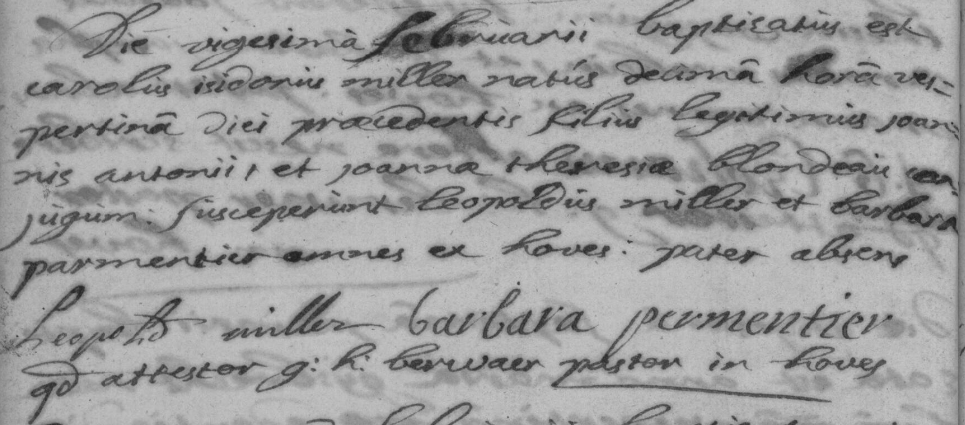 Die vigesimâ februarii baptisatus est
carolus isidorus miller natús decimâ horâ ves=
pertinâ diei præcedentis filius legitimus joan=
nis antonii, et joannæ theresiæ blondeau con=
jugum. susceperunt leopoldus miller et barbara
parmentier omnes ex hoves: pater absens
Leopold miller barbara permentier
qd attestor g: h: berwaer pastor in hoves